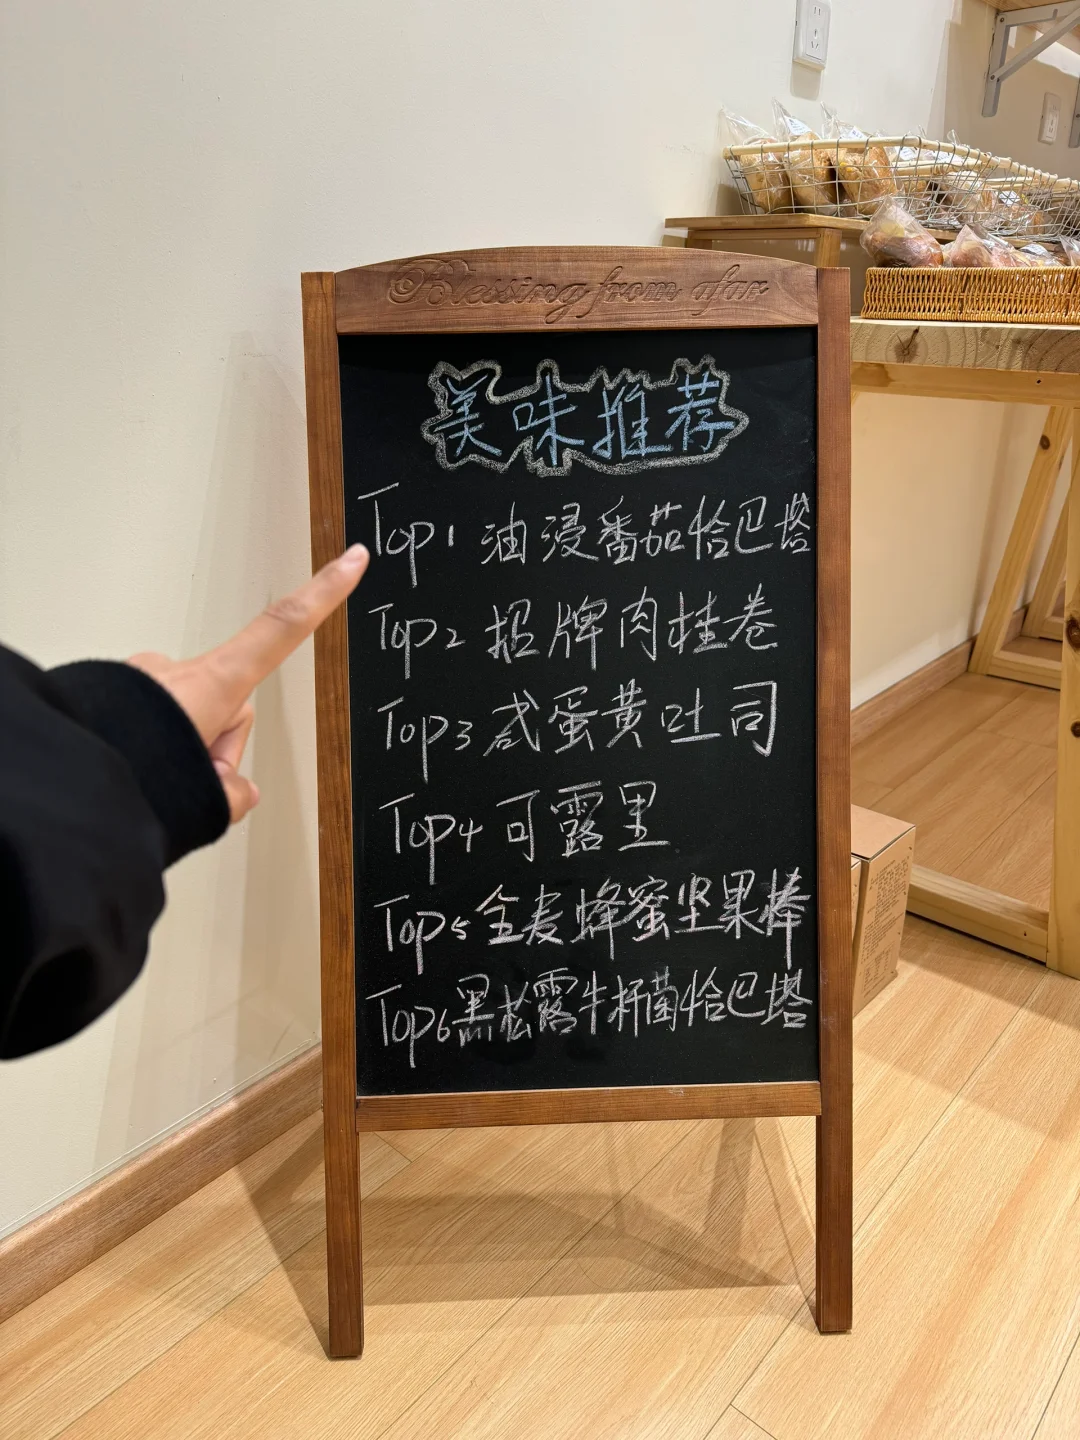 Blessing from afar
美味推荐
Top1 油浸番茄恰巴塔
Top2 招牌肉桂卷
Top3 咸蛋黄吐司
Top4 可露里
Top5 全麦蜂蜜坚果棒
Top6 黑松露牛杆菌恰巴塔